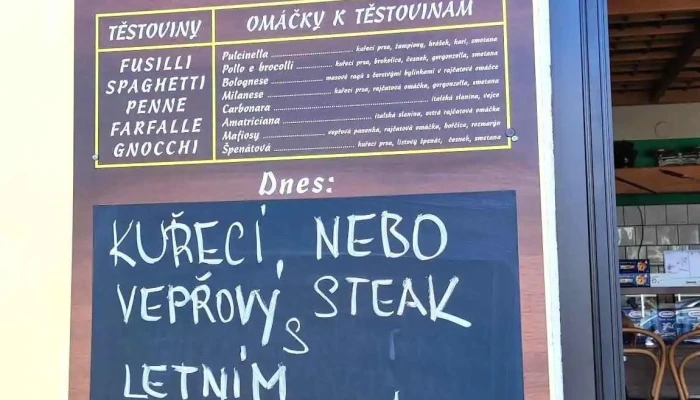 TĚSTOVINY
OMÁČKY K TĚSTOVINÁM
FUSILLI
SPAGHETTI
PENNE
FARFALLE
GNOCCHI
Pulcinella kuřecí prsa, žampiony, hrášek, kari, smetana
Pollo e brocolli kuřecí prsa, brokolice, česnek, gorgonzolla, smetana
Bolognese masové ragú s čerstvými bylinkami v rajčatové omáčce
Milanese kuřecí prsa, rajčatová omáčka, gorgonzolla, smetana
Carbonara italská slanina, vejce
Amatriciana italská slanina, ostrá rajčatová omáčka
Mafiosy vepřová panenka, rajčatová omáčka, hořčice, rozmarýn
Špenátová kuřecí prsa, listový špenát, česnek, smetana
Dnes:
KUŘECÍ, NEBO
VEPŘOVÝ STEAK
S
LETNÍM